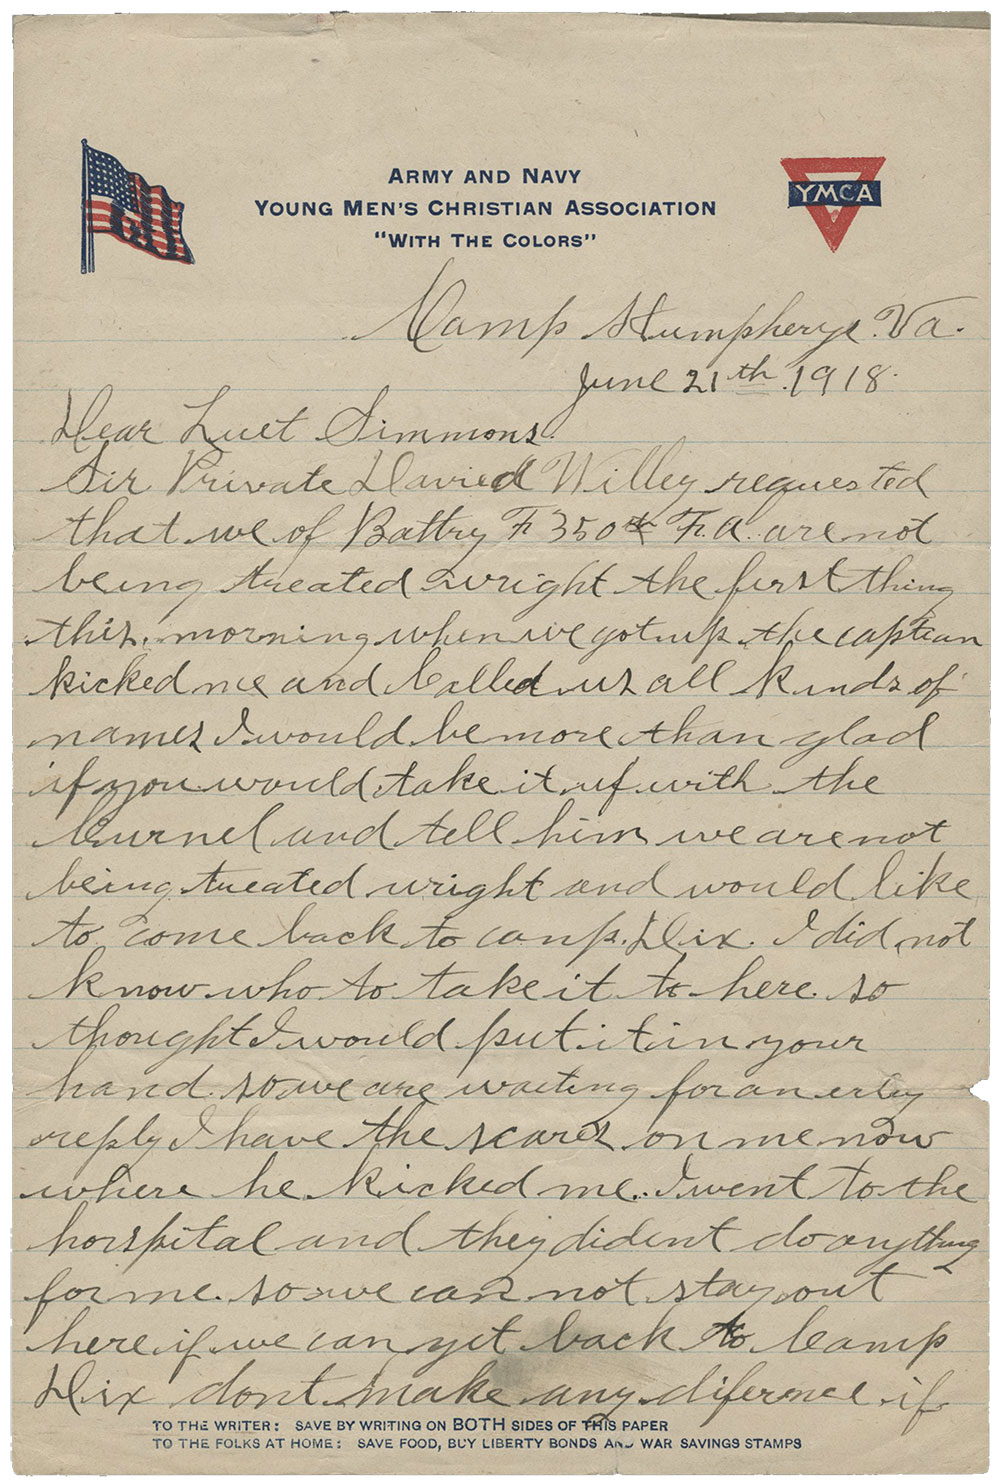 ARMY AND NAVY
YOUNG MEN'S CHRISTIAN ASSOCIATION
"WITH THE COLORS"
YMCA
Camp Humpherye. Va.
June 21th. 1918.
Dear Luet Simmons.
Sir Private Davied Willey requested
that we of Battry F 350th F.A. are not
being treated wright the first thing
this. morning when we got up the captian
kicked me and Called us all kinds of
names I would be more than glad
if you would take it uf with the
Curnel and tell him we are not
being treated wright and would like
to come back to camp. Dix. I did not
know who to take it to here. so
thought I would put it in your
hand. so we are waiting for an erly
reply I have the scares on me now
where he kicked me.. I went to the
horspital and they dident do anything
for me. so we can not stay out
here if we can get back to Camp
Dix dont make any diference if
TO THE WRITER: SAVE BY WRITING ON BOTH SIDES OF THIS PAPER
TO THE FOLKS AT HOME: SAVE FOOD, BUY LIBERTY BONDS AND WAR SAVINGS STAMPS